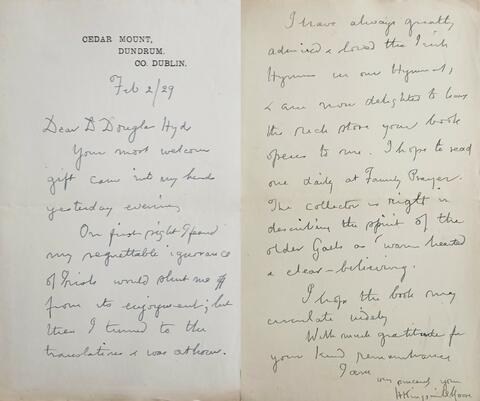 CEDAR MOUNT,
DUNDRUM.
CO. DUBLIN.
Feb 2/29
Dear D Douglas Hyde
Your most welcome
gift came into my hands
yesterday evening
On first sight I feared
my regrettable ignorance
of Irish would shut me off
from its enjoyment; but
then I turned to the
translations & was at home.
I have always greatly
admired & loved the Irish
Hymns in our Hymnal,
& am now delighted to have
the rich store your book
opens to me. I hope to read
one daily at Family Prayer.
The collector is right in
describing the spirit of the
older Gaels as "warm hearted
& clear-believing.
I hope the book may
circulate widely
With much gratitude for
your kind remembrance
I am
very sincerely yours
H Kingsmill Moore